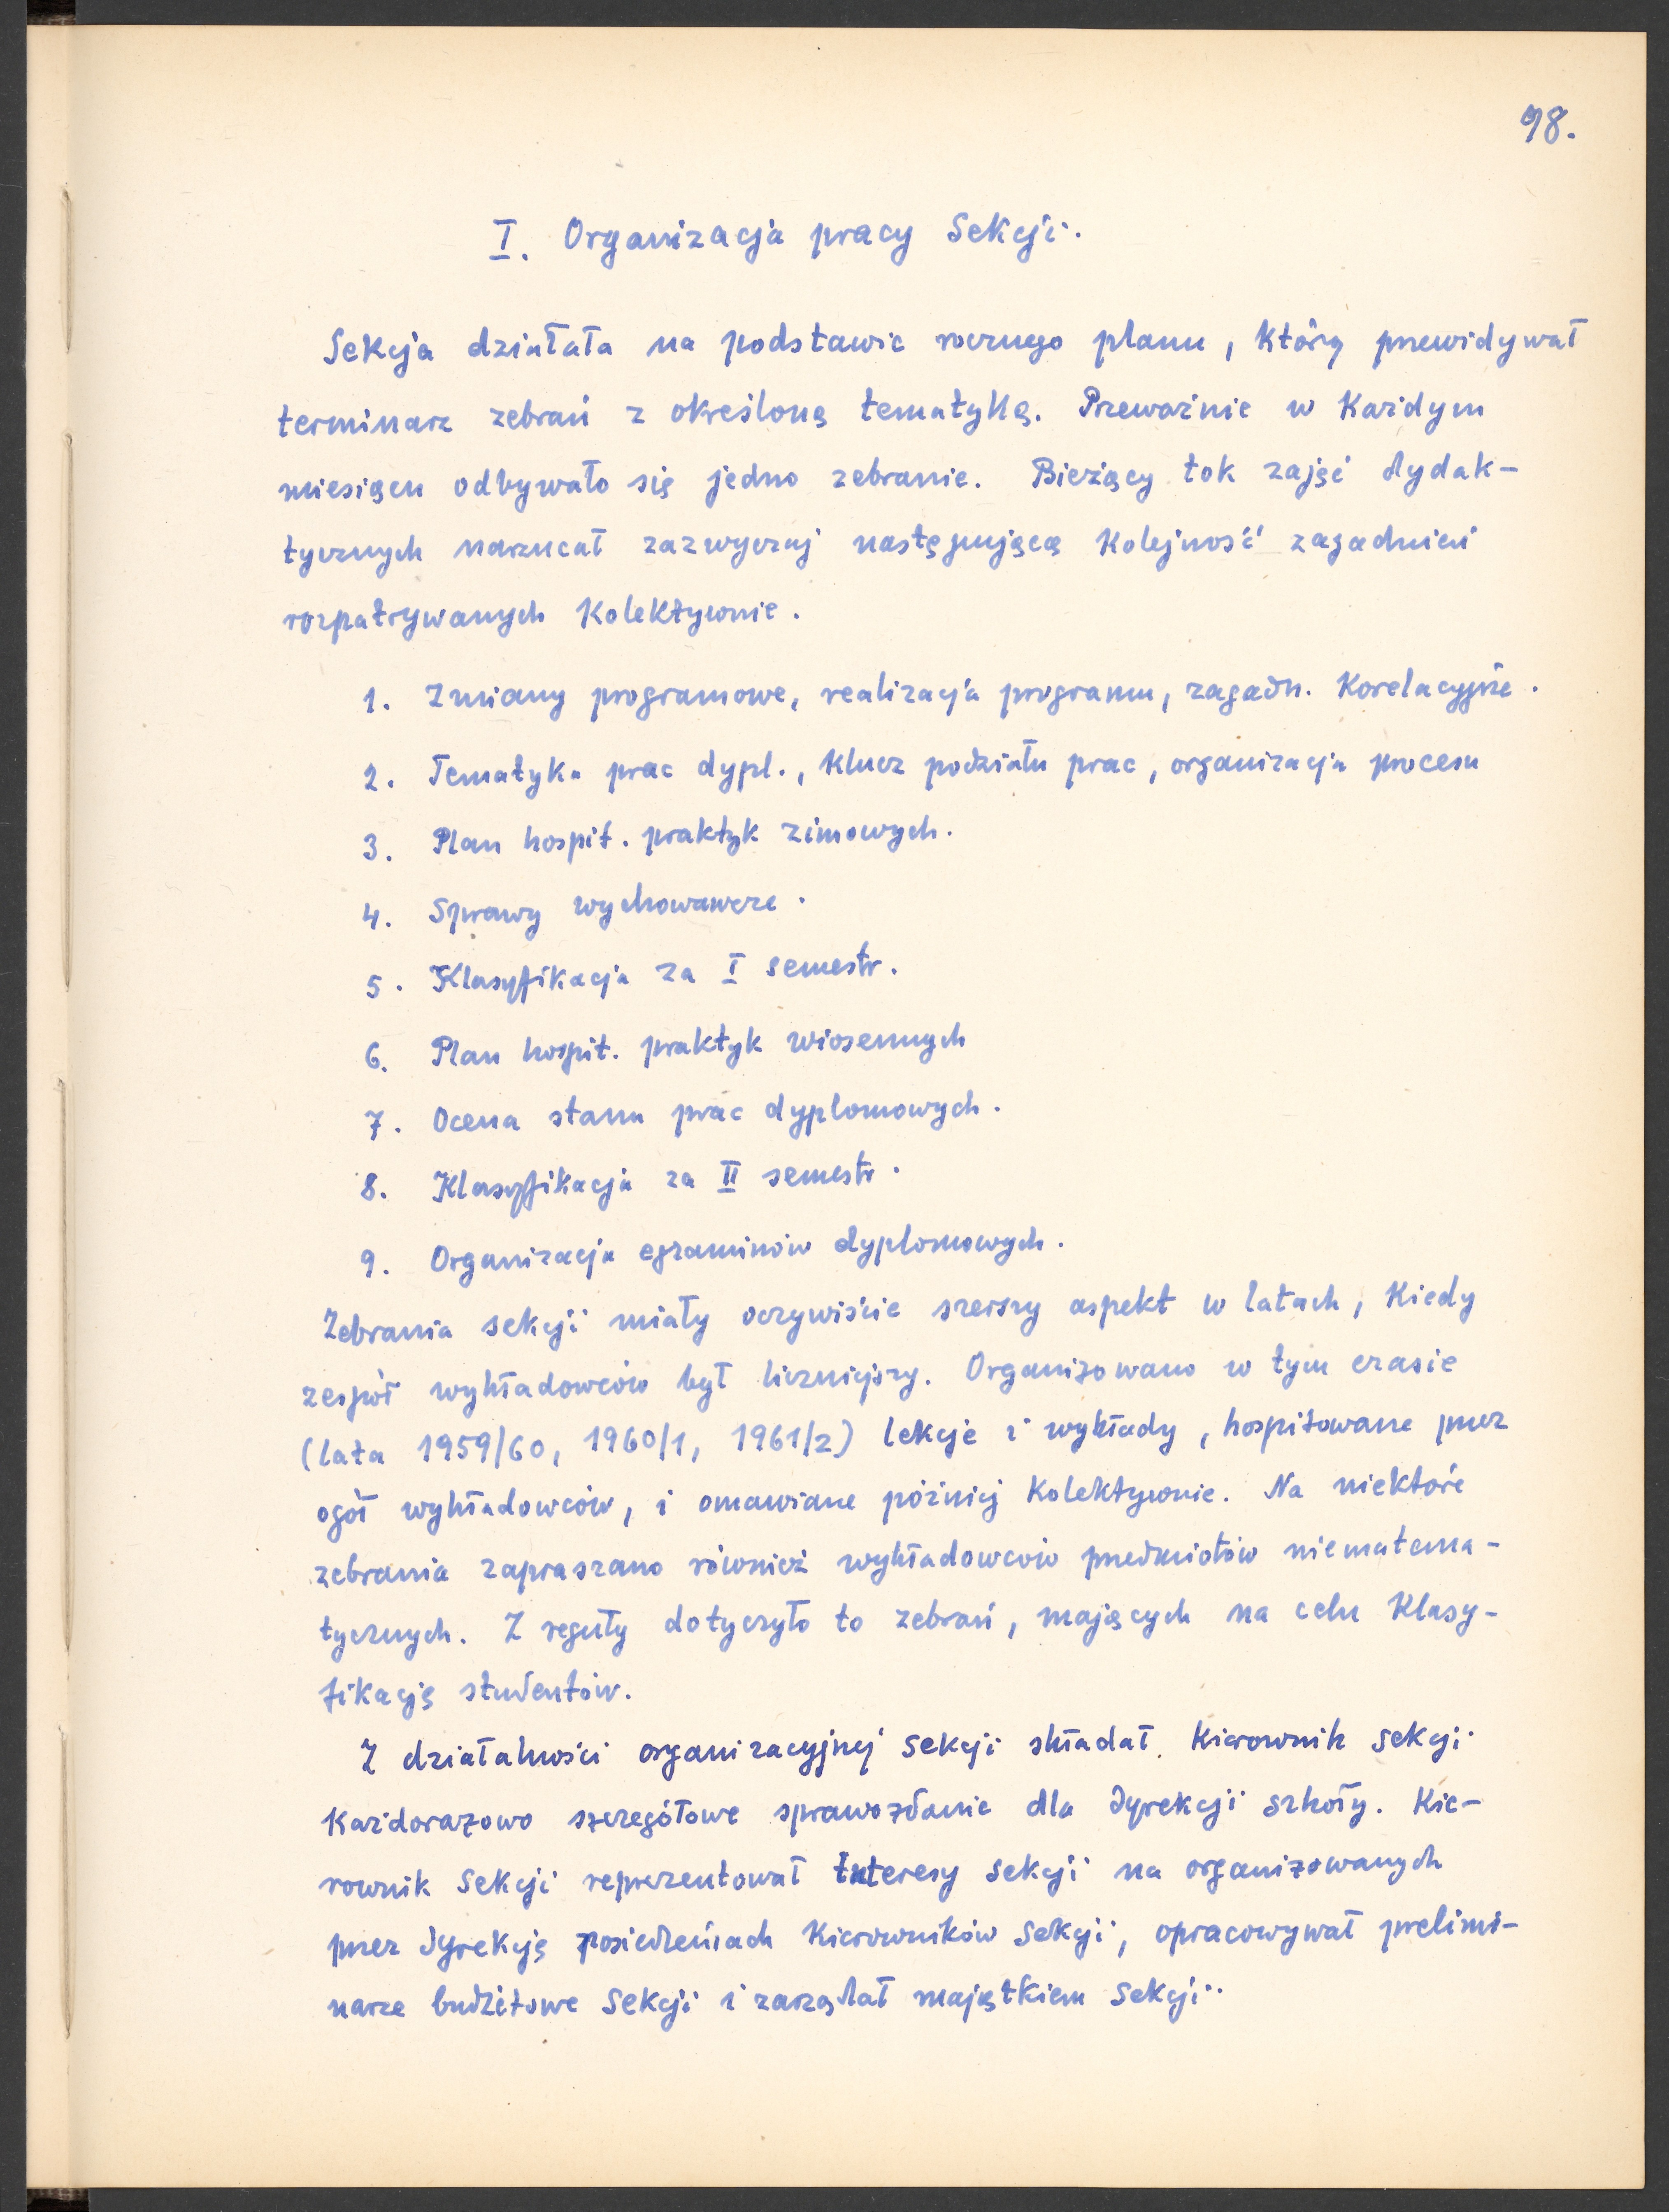 98.
I. Organizacja pracy Sekcji.
Sekcja działała na podstawie rocznego planu, który przewidywał
terminarz zebrań z określoną tematyką. Przeważnie w każdym
miesiącu odbywało się jedno zebranie. Bieżący tok zajęć dydak-
tycznych narzucał zazwyczaj następującą kolejność zagadnień
rozpatrywanych kolektywnie.
1. Zmiany programowe, realizacja programu, zagadn. korelacyjne.
2. Tematyka prac dypl., klucz podziału prac, organizacja procesu
3. Plan hospit. praktyk zimowych.
4. Sprawy wychowawcze.
5. Klasyfikacja za I semestr.
6. Plan hospit. praktyk wiosennych
7. Ocena stanu prac dyplomowych.
8. Klasyfikacja za II semestr.
9. Organizacja egzaminów dyplomowych.
Zebrania sekcji miały oczywiście szerszy aspekt w latach, kiedy
zespół wykładowców był liczniejszy. Organizowano w tym czasie
(lata 1959/60, 1960/1, 1961/2) lekcje i wykłady, hospitowane przez
ogół wykładowców, i omawiane później kolektywnie. Na niektóre
zebrania zapraszano również wykładowców przedmiotów niematema-
tycznych. Z reguły dotyczyło to zebrań, mających na celu klasy-
fikację studentów.
Z działalności organizacyjnej sekcji składał kierownik sekcji
każdorazowo szczegółowe sprawozdanie dla dyrekcji szkoły. Kie-
rownik Sekcji reprezentował interesy sekcji na organizowanych
przez dyrekcję posiedzeniach kierowników sekcji, opracowywał prelimi-
narze budżetowe Sekcji i zarządzał majątkiem Sekcji.